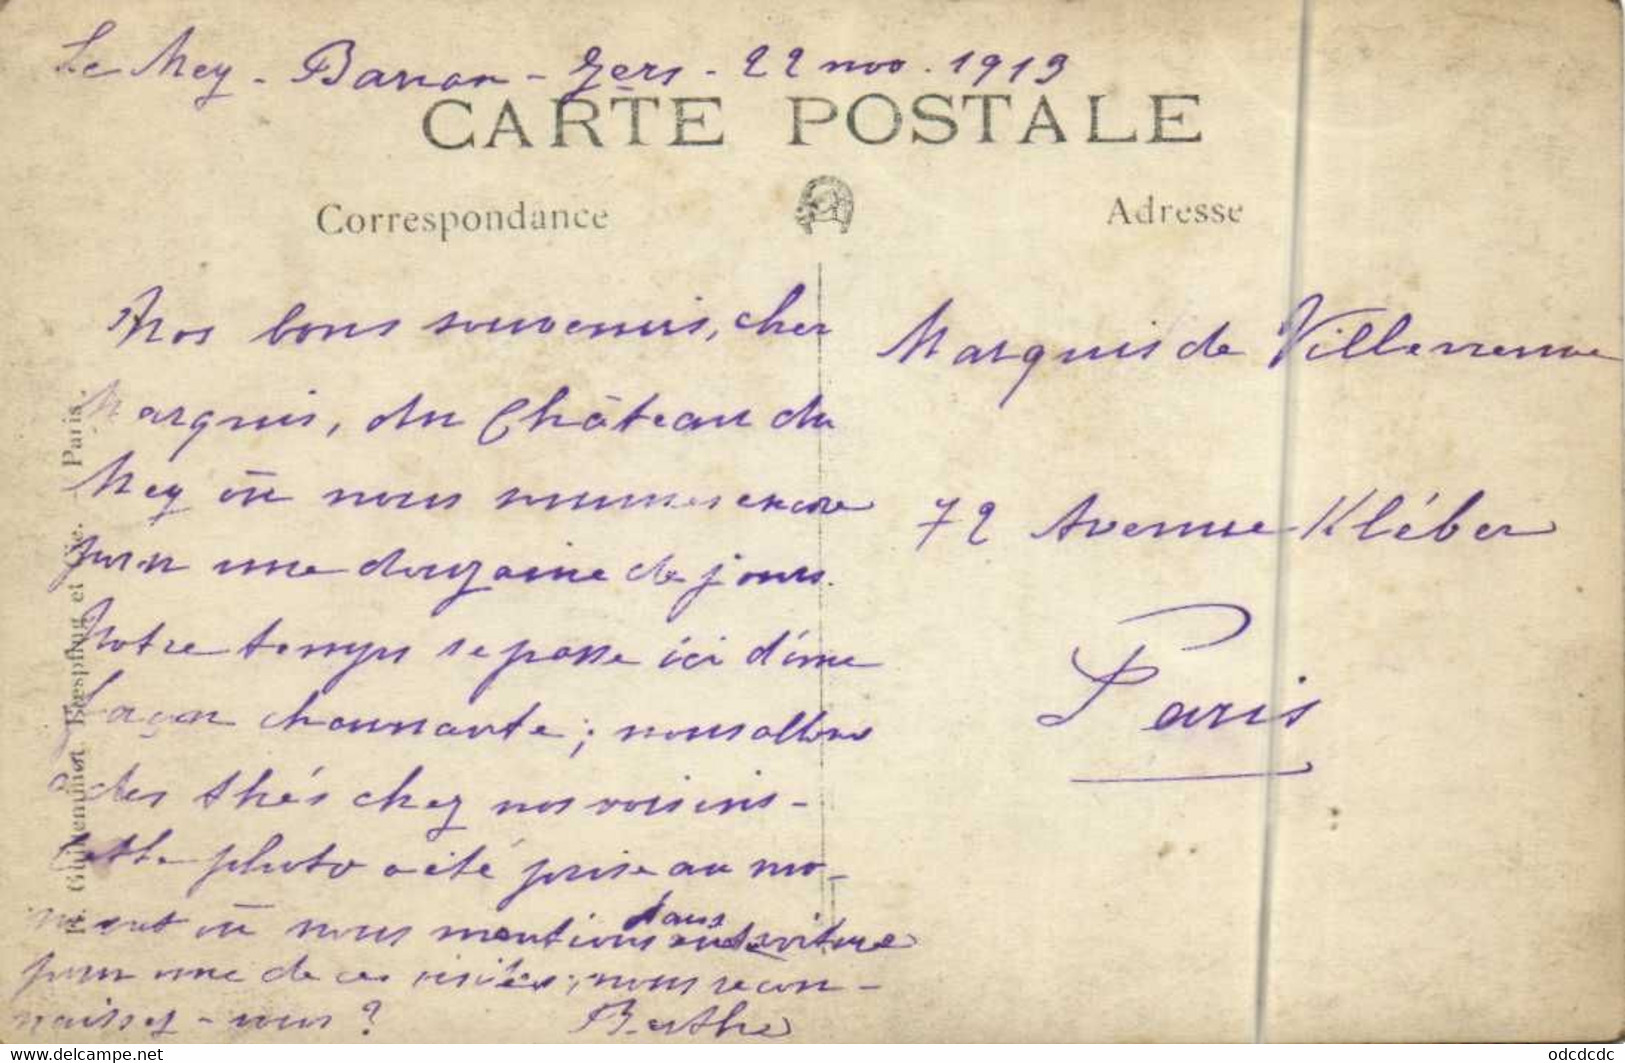 Le Mey - Barran - Gers - 22 nov. 1913
CARTE POSTALE
Correspondance
Adresse
Nos bons souvenirs, cher
Marquis, du Château du
Mey où nous sommes encore
pour une douzaine de jours.
Notre temps se passe ici d'une
façon charmante; nous allons
à des thés chez nos voisins -
Cette photo a été prise au mo-
ment où nous montions dans voiture
pour une de ces visites; nous recon-
naissez-vous? Berthe
Marquis de Villeneuve
72 Avenue Kléber
Paris
Guilleminot Bœspflug et Cie. Paris.
odcdcdc
www.delcampe.net